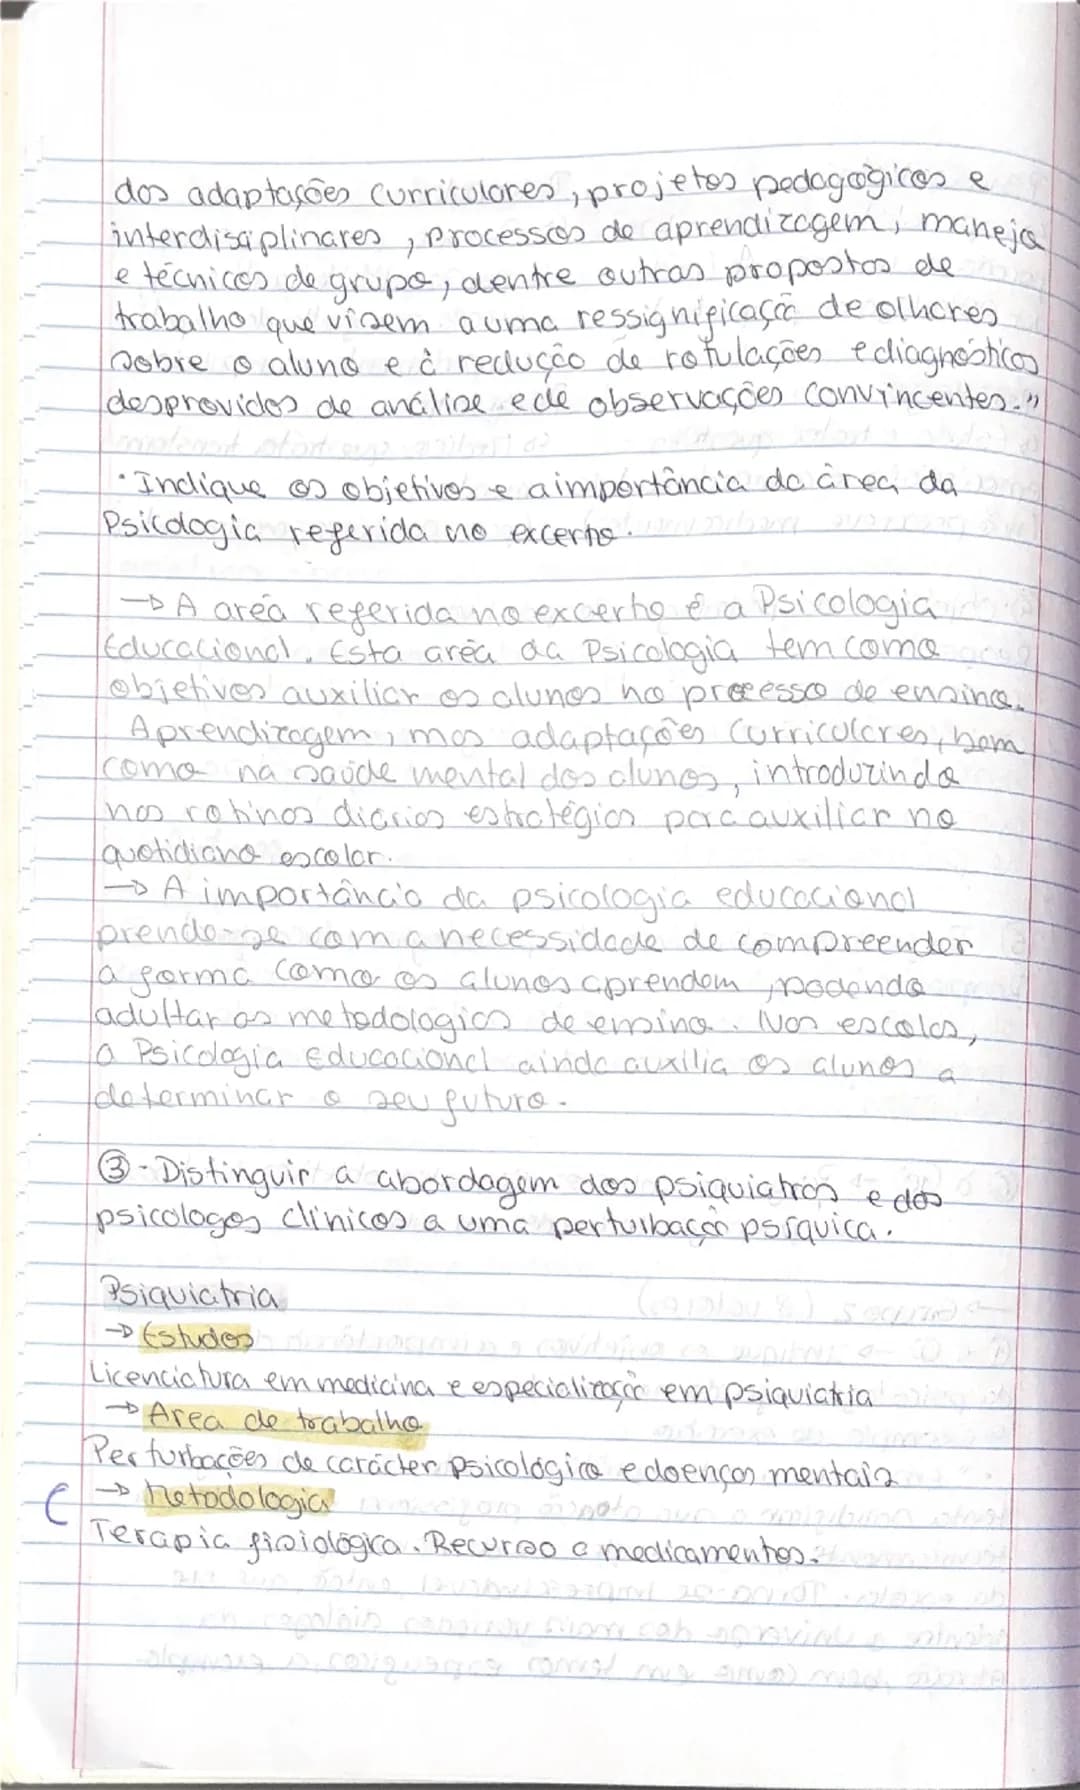 dos adaptações curriculares, projetos pedagógicos e
interdisciplinares, processos de aprendizagem, manejo
e técnicas de grupo, dentre outras propostas de
trabalho que visem a uma ressignificação de olhares
sobre o aluno e à redução de rotulações e diagnósticos
desprovidos de análise e de observações convincentes."
· Indique os objetivos e a importância da área da
Psicologia referida no excerto.
→ A areá referida no excerto é a Psicologia
Educacional. Esta areá da Psicologia tem como
objetivos auxiliar os alunos no processo de ensino.
Aprendizagem, mas adaptações curriculares, bem
como na saúde mental dos alunos, introduzindo
nas rotinas diárias estratégias para auxiliar no
quotidiano escolar.
→ A importância da psicologia educacional
prende-se com a necessidade de compreender
a forma como os alunos aprendem, podendo
adultar as metodologias de ensino. Nas escolas,
a Psicologia Educacional ainda auxilia os alunos a
determinar o seu futuro.
③ - Distinguir a abordagem dos psiquiatras e dos
psicologos clínicos a uma perturbação psíquica.
Psiquiatria
→ Estudos
Licenciatura em medicina e especialização em psiquiatria
→ Area de trabalho
Perturbações de carácter psicológico e doenças mentais
→ Metodologia
Terapia fisiológica. Recurso a medicamentos.